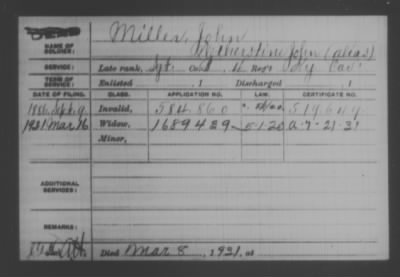 NAME OF SOLDIER: Miller, John
John (alias)
SERVICE: Late rank, Sgt. Co. , Reg't Cav.
TERM OF SERVICE: Enlisted , 1 Discharged , 1
DATE OF FILING. CLASS. APPLICATION NO. LAW. CERTIFICATE NO.
1886 Sept. 9 Invalid, 584.860
1931 Mar 16 Widow, 1689439 5-1-20 a-7-21-31
Minor,
ADDITIONAL SERVICES:
REMARKS:
Died Mar 8, 1931, at